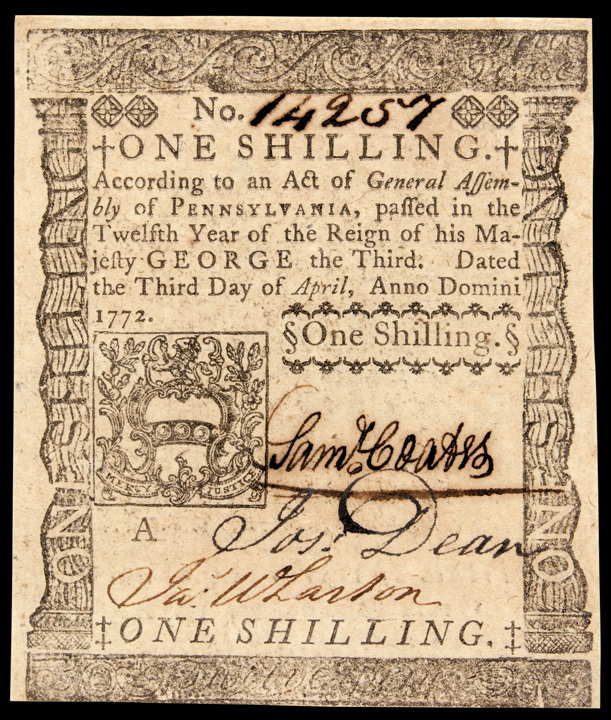 No. 14257
†ONE SHILLING.†
According to an Act of General Aſſem-
bly of PENNSYLVANIA, paſſed in the
Twelfth Year of the Reign of his Ma-
jeſty GEORGE the Third. Dated
the Third Day of April, Anno Domini
1772.
§One Shilling.§
MERCY JUSTICE
Saml. Coates
A
Jos. Dean
Jas. Wharton
‡ONE SHILLING.‡
ONE SHILLING
ONE SHILLING